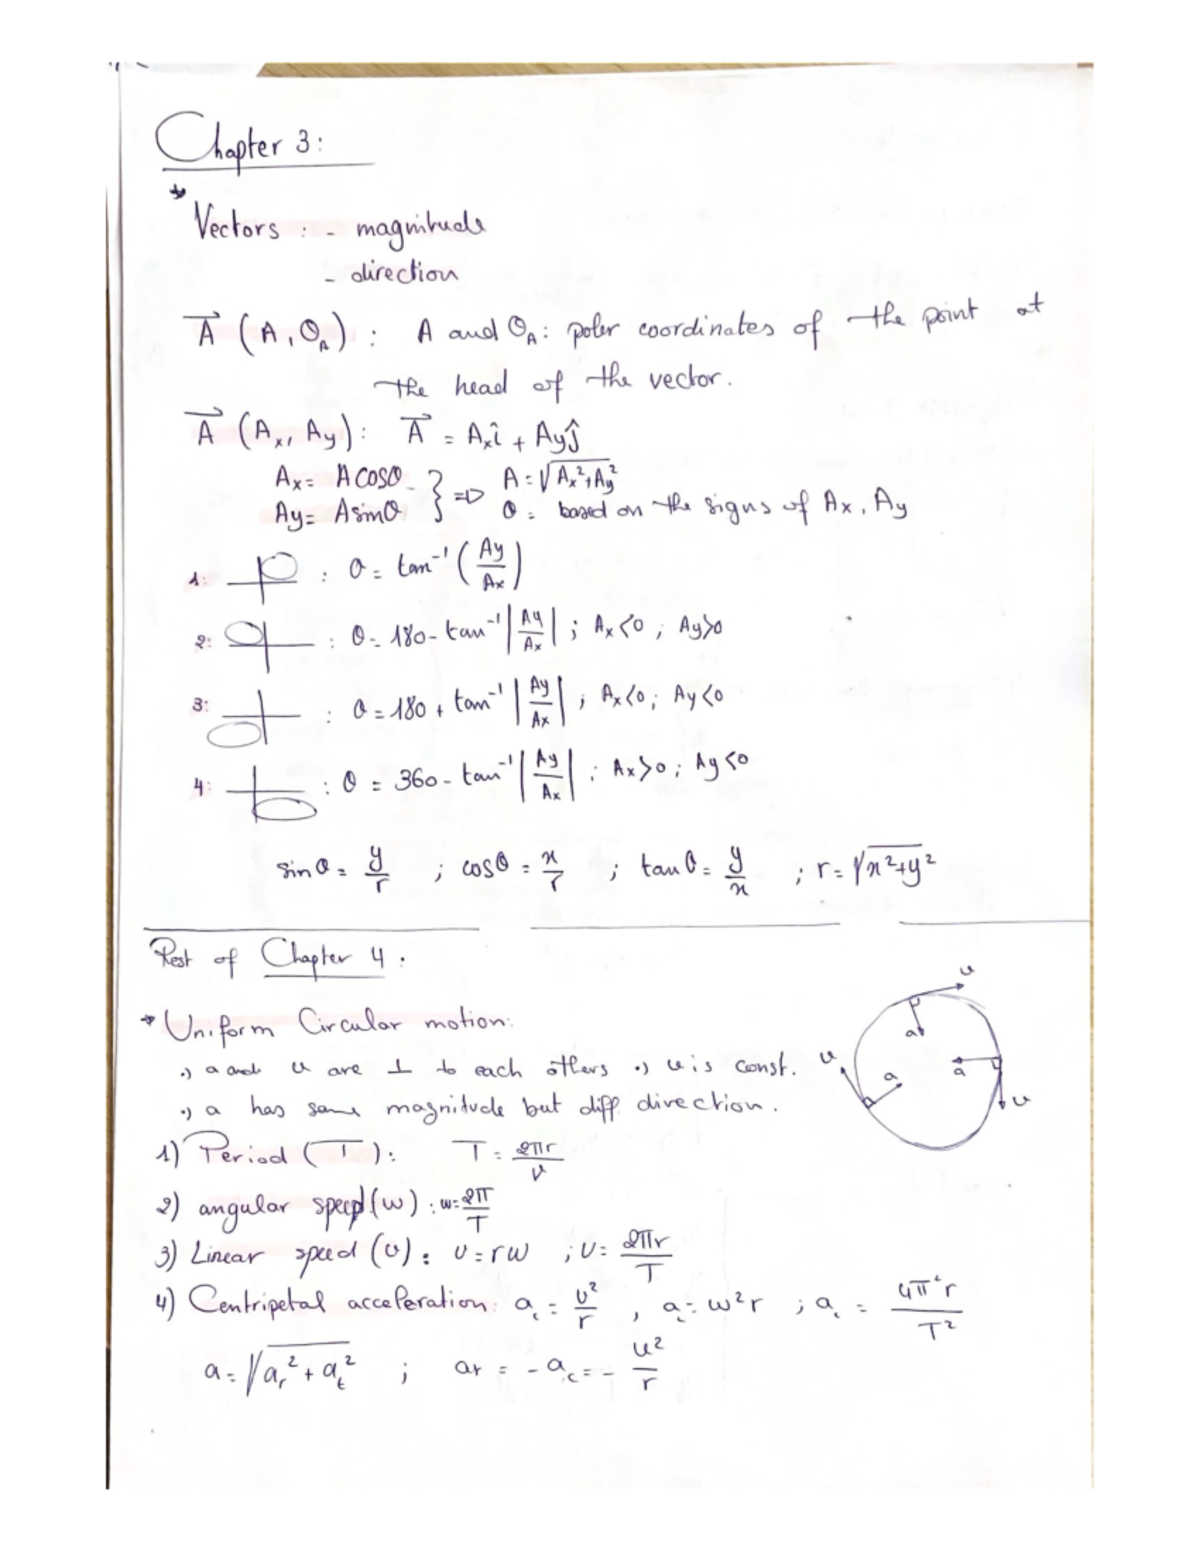 Chapter 3:
* Vectors : - magnitude
- direction
A⃗ (A, θ_A) : A and θ_A : polar coordinates of the point at
the head of the vector.
A⃗ (Ax, Ay) : A⃗ = Axî + Ayĵ
Ax = A cosθ } => A = √(Ax² + Ay²)
Ay = A sinθ } θ = based on the signs of Ax, Ay
1: : θ = tan⁻¹ (Ay/Ax)
2: : θ = 180 - tan⁻¹ |Ay/Ax| ; Ax<0 ; Ay>0
3: : θ = 180 + tan⁻¹ |Ay/Ax| ; Ax<0 ; Ay<0
4: : θ = 360 - tan⁻¹ |Ay/Ax| ; Ax>0 ; Ay<0
sinθ = y/r ; cosθ = x/r ; tanθ = y/x ; r = √(x²+y²)
Rest of Chapter 4 :
* Uniform Circular motion:
.) a and v are ⊥ to each others .) v is const.
.) a has same magnitude but diff. direction.
v
a
v
a
a
v
1) Period (T) : T = 2πr/v
2) angular speed (w) : w = 2π/T
3) Linear speed (v) : v = rw ; v = 2πr/T
4) Centripetal acceleration: a_c = v²/r , a_c = w²r ; a_c = 4π²r/T²
a = √(a_r² + a_t²) ; ar = - a_c = - v²/r